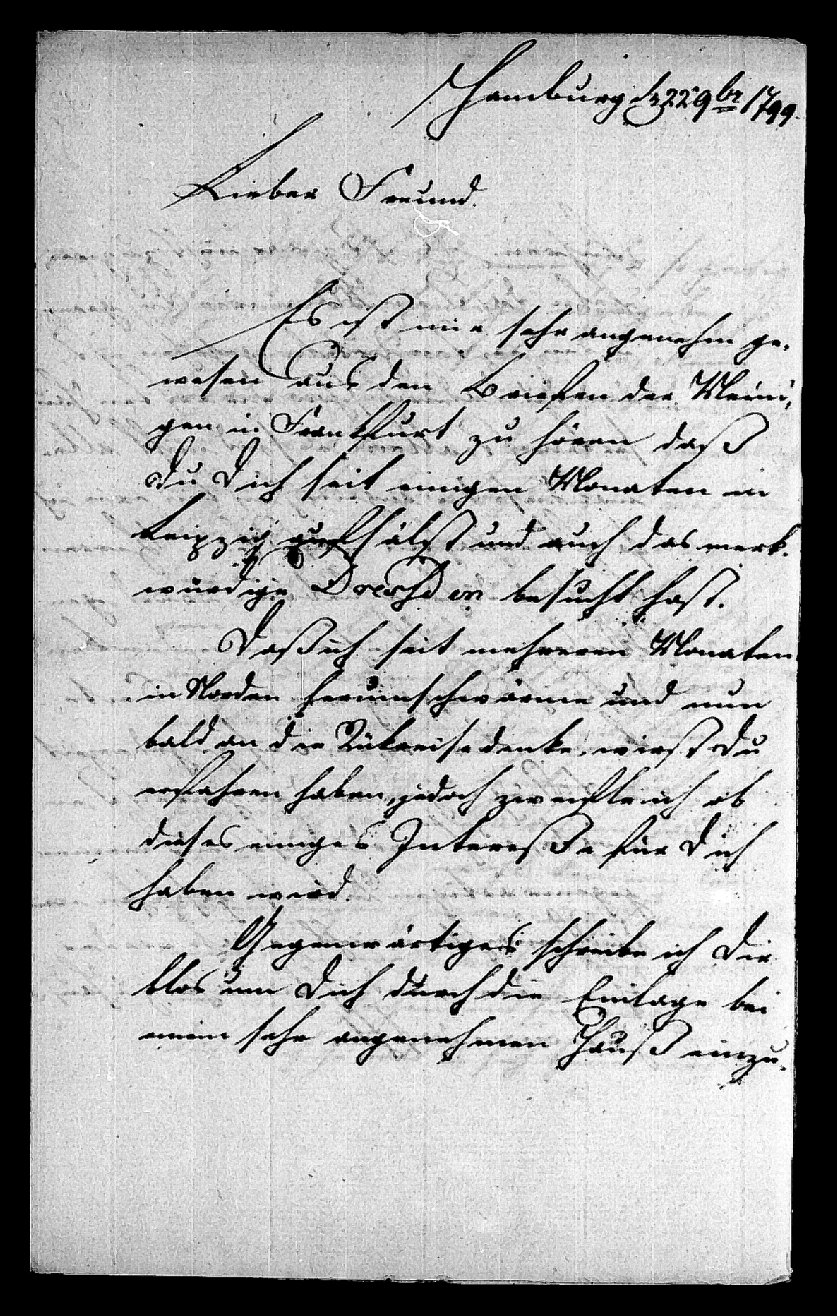 Hamburg d 22 9br 1799.
Lieber Freund.
Es ist mir sehr angenehm ge-
wesen aus den Briefen der Meini-
gen in Frankfurt zu hören daß
Du Dich seit einigen Monaten in
Leipzig aufhälst und auch das merk-
würdige Dresden besucht hast.
Daß ich seit mehreren Monaten
in Norden herumschwärme und nun
bald an die Rükreise denke, wirst Du
erfahren haben, jedoch zweifle ich ob
dieses einiges Interesse für Dich
haben wird.
Gegenwärtiges schreibe ich Dir
blos um Dich durch die Einlage bei
einem sehr angenehmen Hauß einzu-